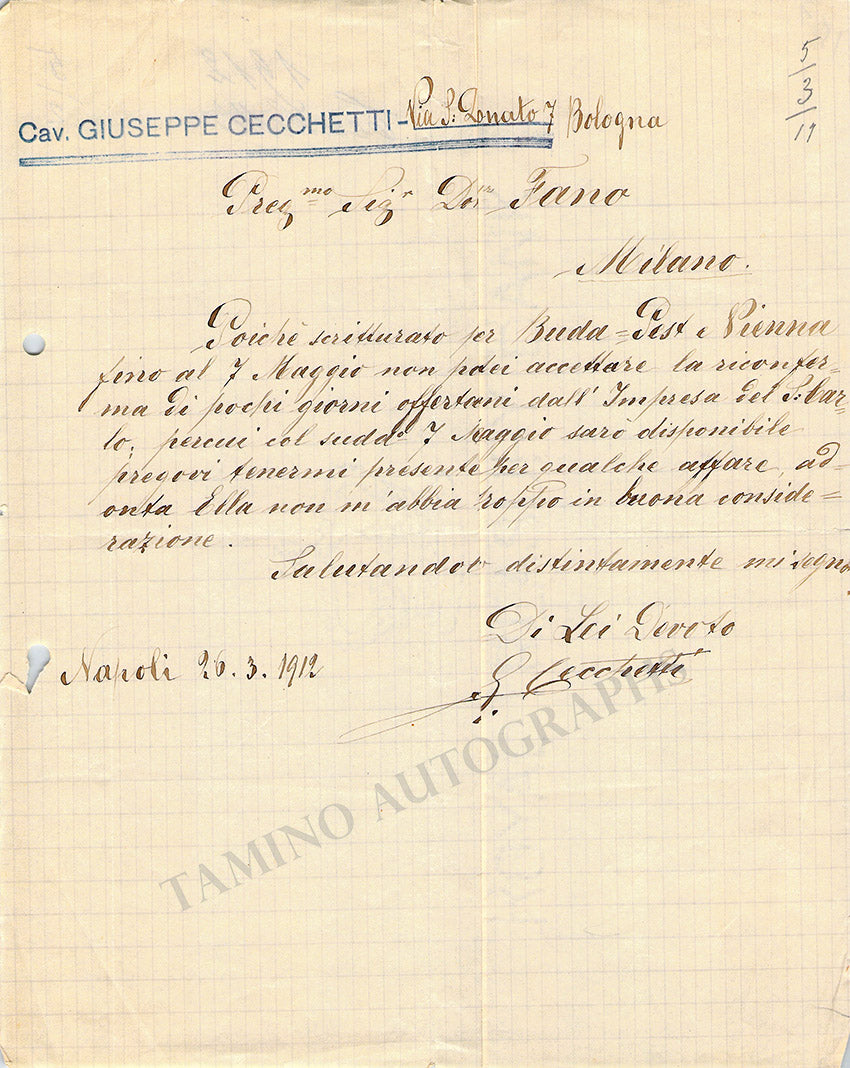 5/3/11
Cav. GIUSEPPE CECCHETTI - Via S: Donato 7 Bologna
Preg.mo Sigr Dor Fano
Milano.
Poichè scritturato per Buda=Pest e Vienna
fino al 7 Maggio non potei accettare la riconfer=
ma di pochi giorni offertami dall' Impresa del S: Car=
lo; percui col sudd.o 7 Maggio sarò disponibile
pregovi tenermi presente per qualche affare, ad
onta Ella non m'abbia troppo in buona conside=
razione.
Salutandovi distintamente mi segno
Di Lei Devoto
G Cecchetti
Napoli 26. 3. 1912
TAMINO AUTOGRAPHS